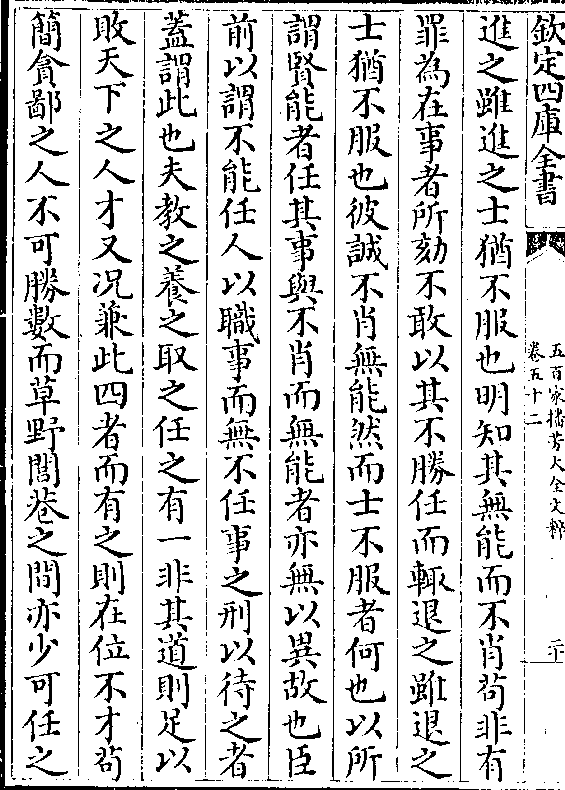 欽定四庫全書
五百家播芳大全文粹
卷五十二
二十
進之雖進之士猶不服也明知其無能而不肖茍非有
罪為在事者所劾不敢以其不勝任而輒退之雖退之
士猶不服也彼誠不肖無能然而士不服者何也以所
謂賢能者任其事與不肖而無能者亦無以異故也臣
前以謂不能任人以職事而無不任事之刑以待之者
蓋謂此也夫教之養之取之任之有一非其道則足以
敗天下之人才又況兼此四者而有之則在位不才茍
簡貪鄙之人不可勝數而草野閭巷之間亦少可任之